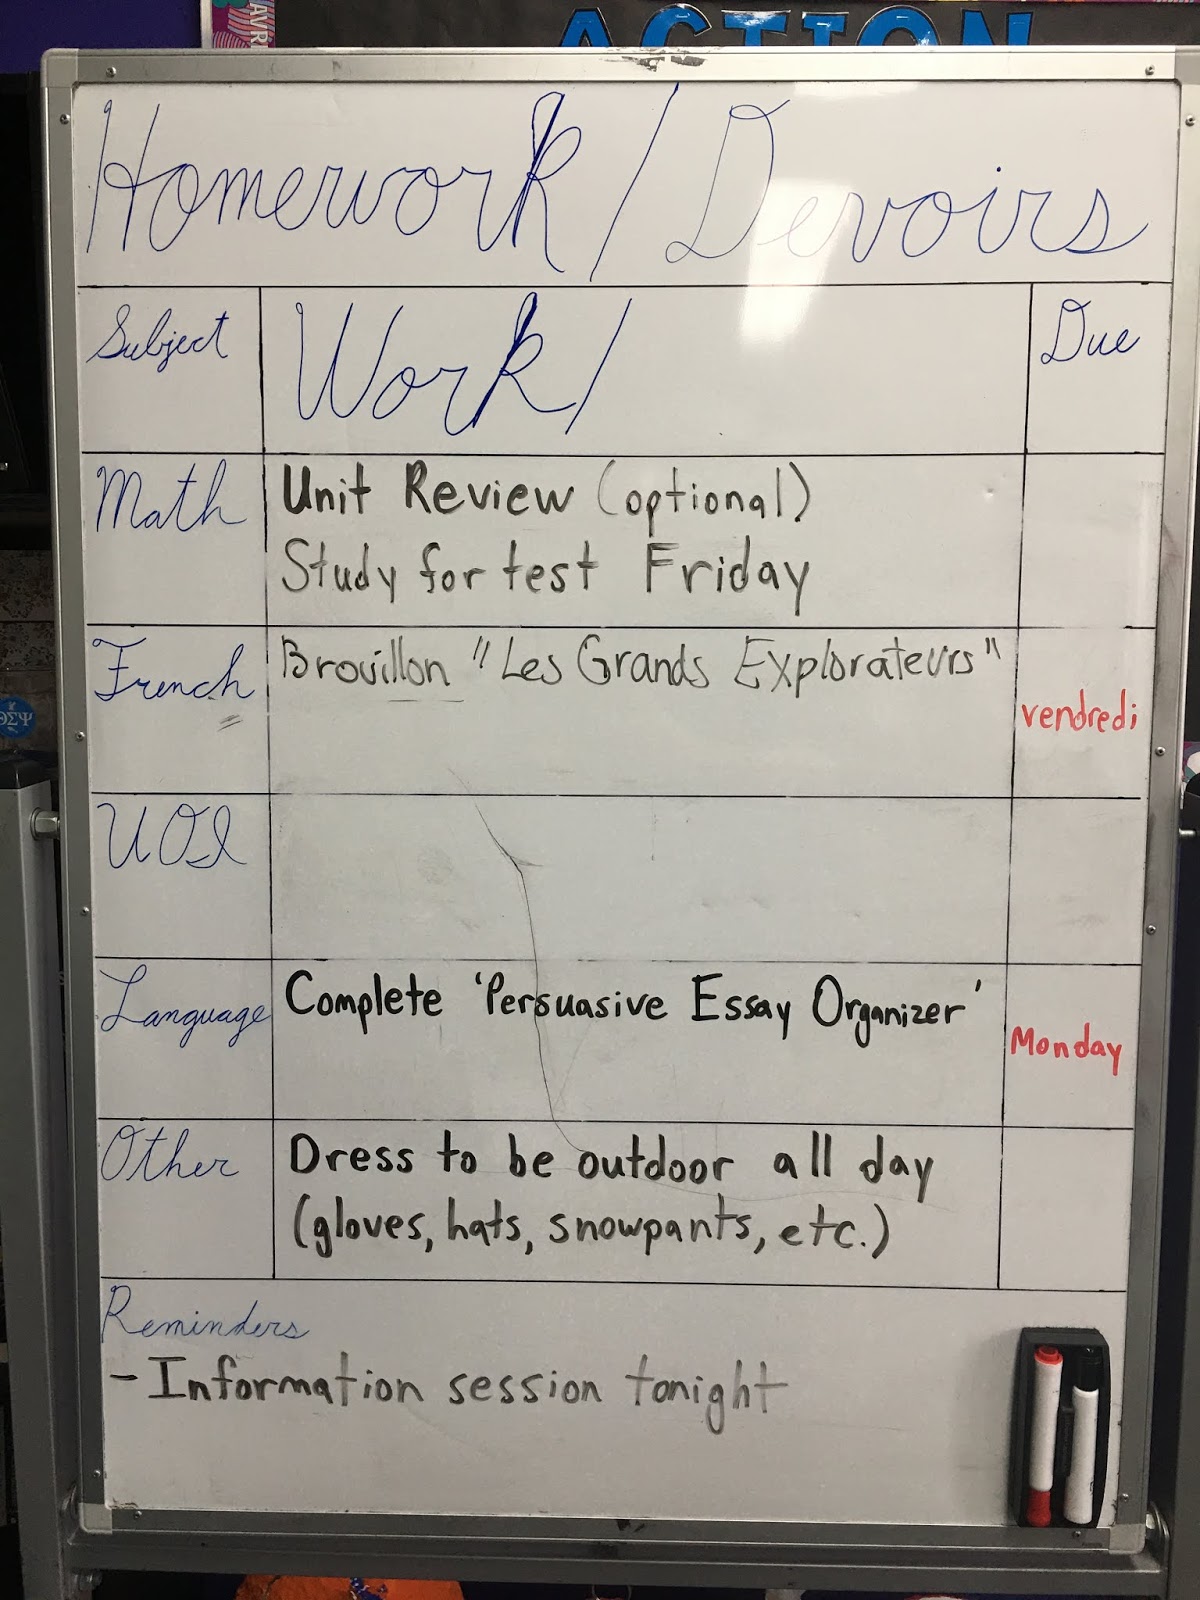 ACTION
Homework / Devoirs
Subject Work / Due
Math Unit Review (optional)
Study for test Friday
French Brouillon "Les Grands Explorateurs" vendredi
UOI
Language Complete 'Persuasive Essay Organizer' Monday
Other Dress to be outdoor all day
(gloves, hats, snowpants, etc.)
Reminders
- Information session tonight